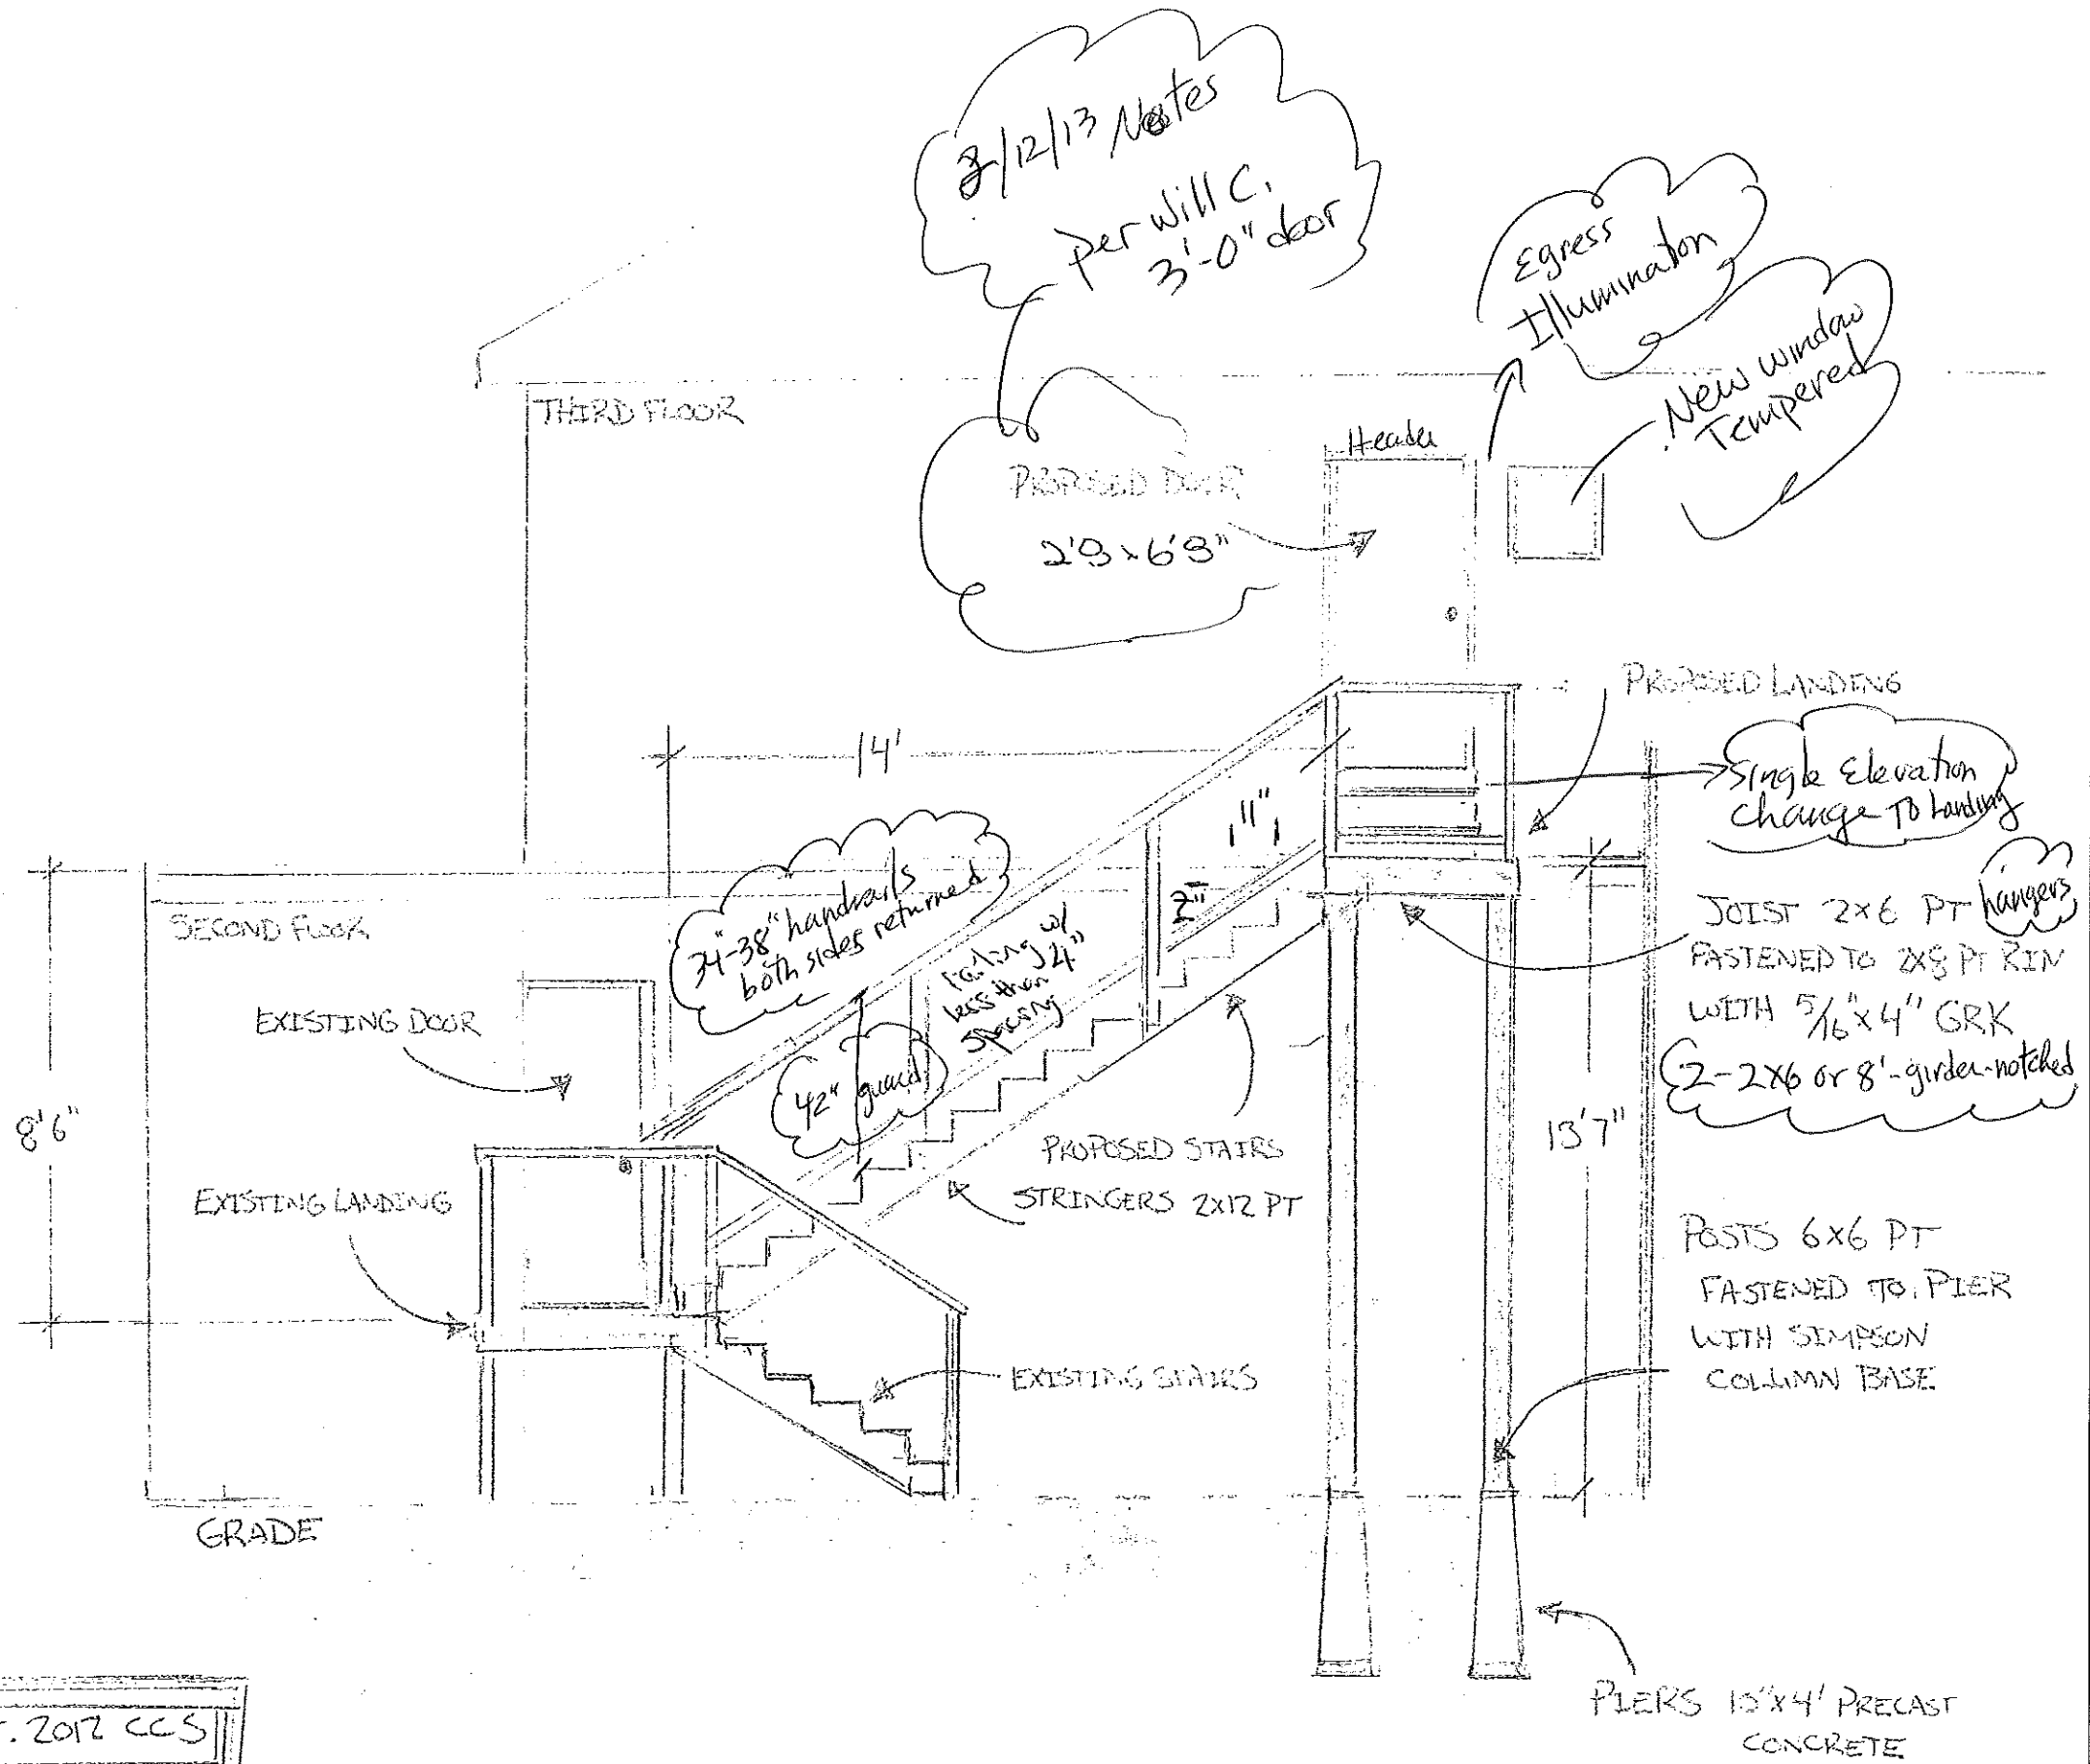 /12/13 Notes
per Will C.
3'-0" door
Egress
Illumination
New window
Tempered
THIRD FLOOR
Header
PROPOSED DOOR
2'8 x 6'8"
PROPOSED LANDING
14'
Single Elevation
Change To Landing
11"
34"-38" handrails
both sides returned
railing w/
less than 4"
spacing
SECOND FLOOR
JOIST 2x6 PT hangers
FASTENED TO 2x8 PT RIM
WITH 5/16"x4" GRK
2-2x6 or 8'-girder-notched
EXISTING DOOR
42" guard
8'6"
13'7"
PROPOSED STAIRS
STRINGERS 2x12 PT
EXISTING LANDING
POSTS 6x6 PT
FASTENED TO PIER
WITH SIMPSON
COLUMN BASE
EXISTING STAIRS
GRADE
PIERS 10"x4' PRECAST
CONCRETE
. 2012 CCS